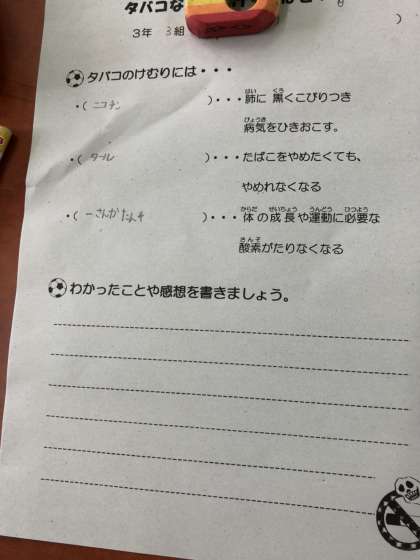 タバコな
3年 3組 )
タバコのけむりには・・・
・( ニコチン )・・・肺に黒くこびりつき
病気をひきおこす。
・( タール )・・・たばこをやめたくても、
やめれなくなる
・( 一さんかたんそ )・・・体の成長や運動に必要な
酸素がたりなくなる
わかったことや感想を書きましょう。